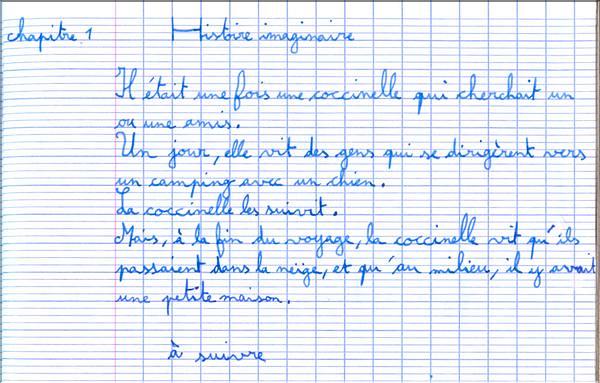 chapitre 1 Histoire imaginaire
Il était une fois une coccinelle qui cherchait un
ou une amis.
Un jour, elle vit des gens qui se dirigèrent vers
un camping avec un chien.
La coccinelle les suivit.
Mais, à la fin du voyage, la coccinelle vit qu'ils
passaient dans la neige, et qu'au milieu, il y avait
une petite maison.
à suivre